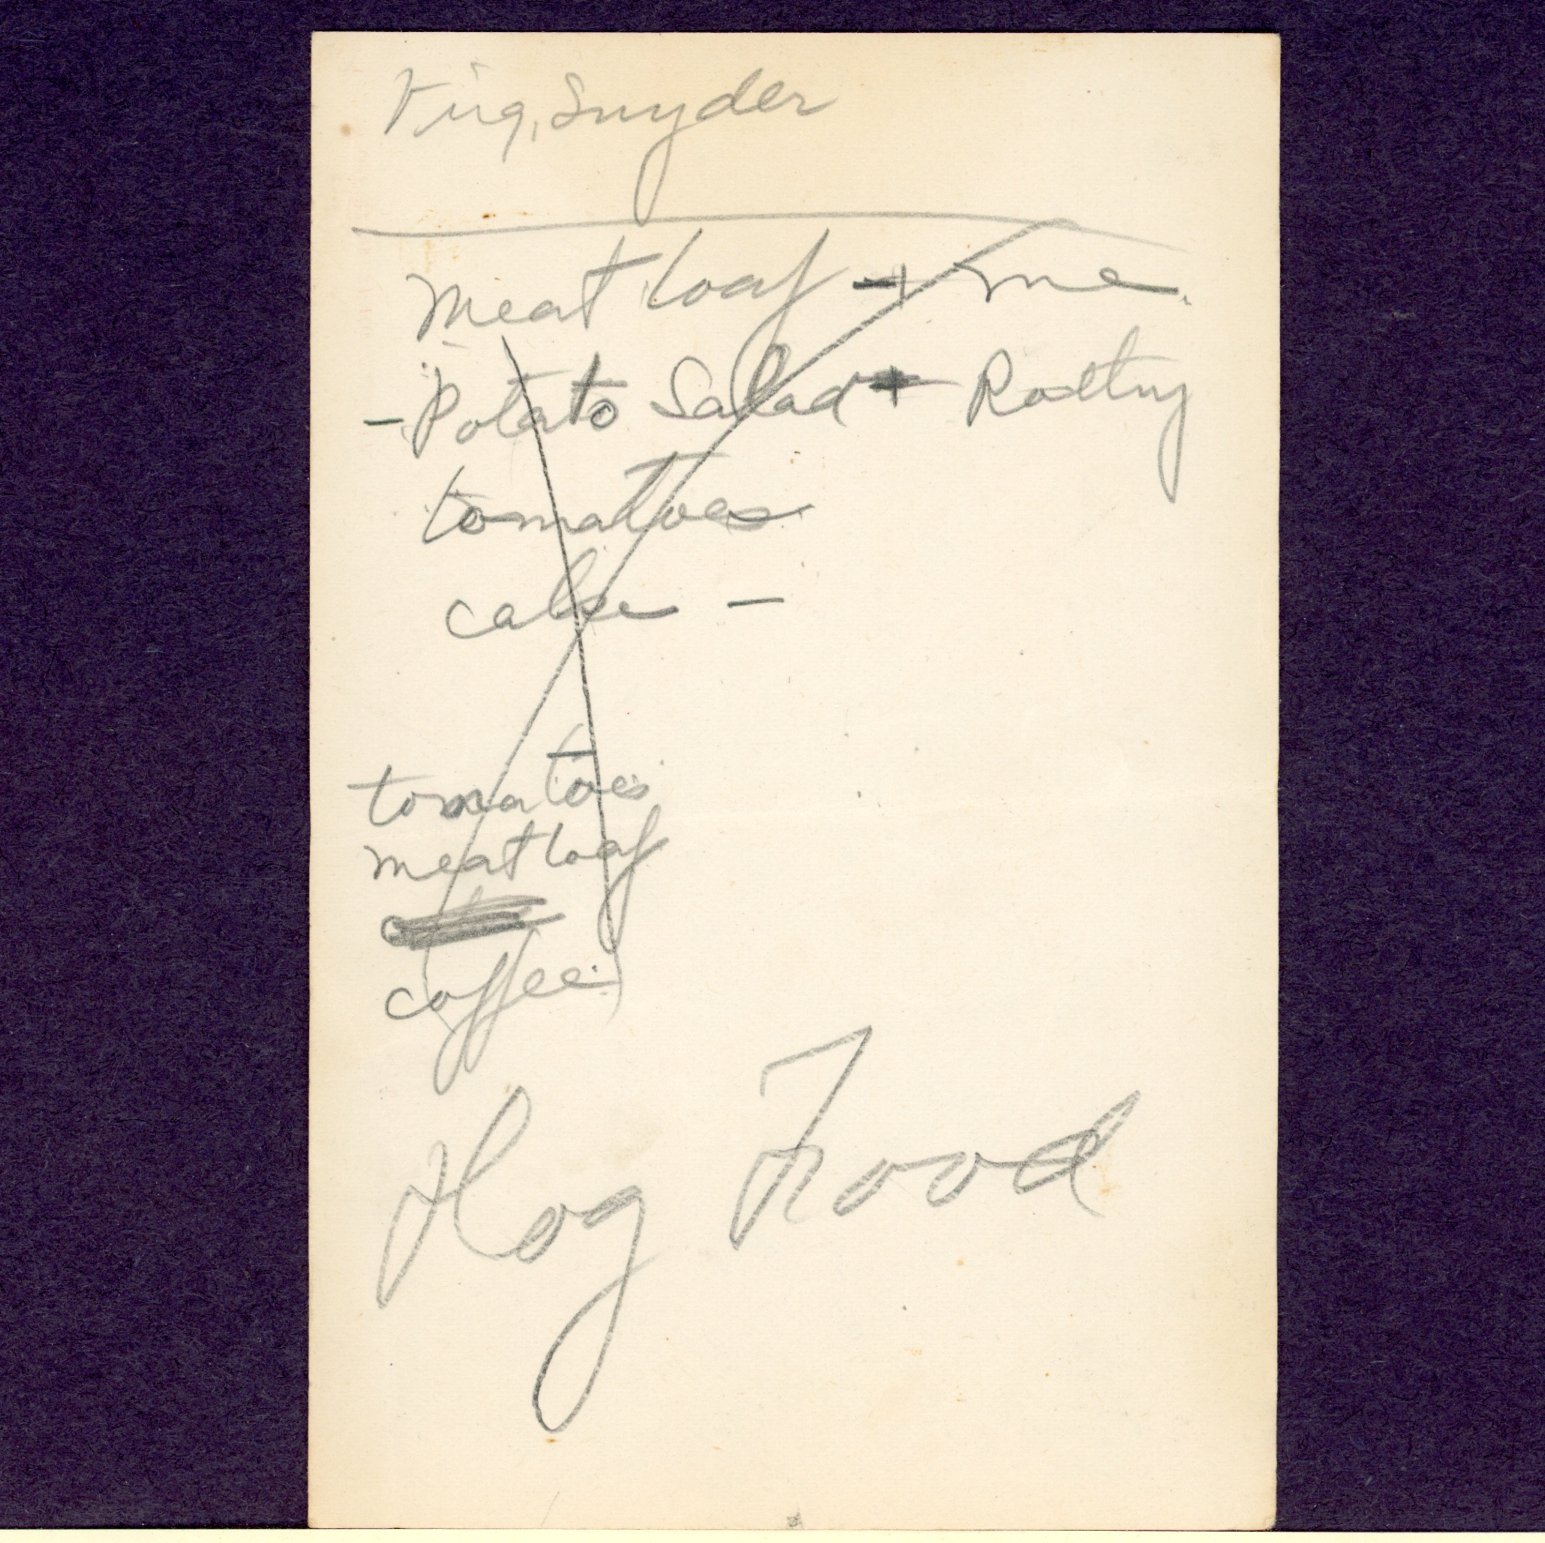 Virg. Snyder
Meat loaf + me
- Potato Salad +
tomatoes
cake -
tomatoes
meat loaf
coffee
Hog Food